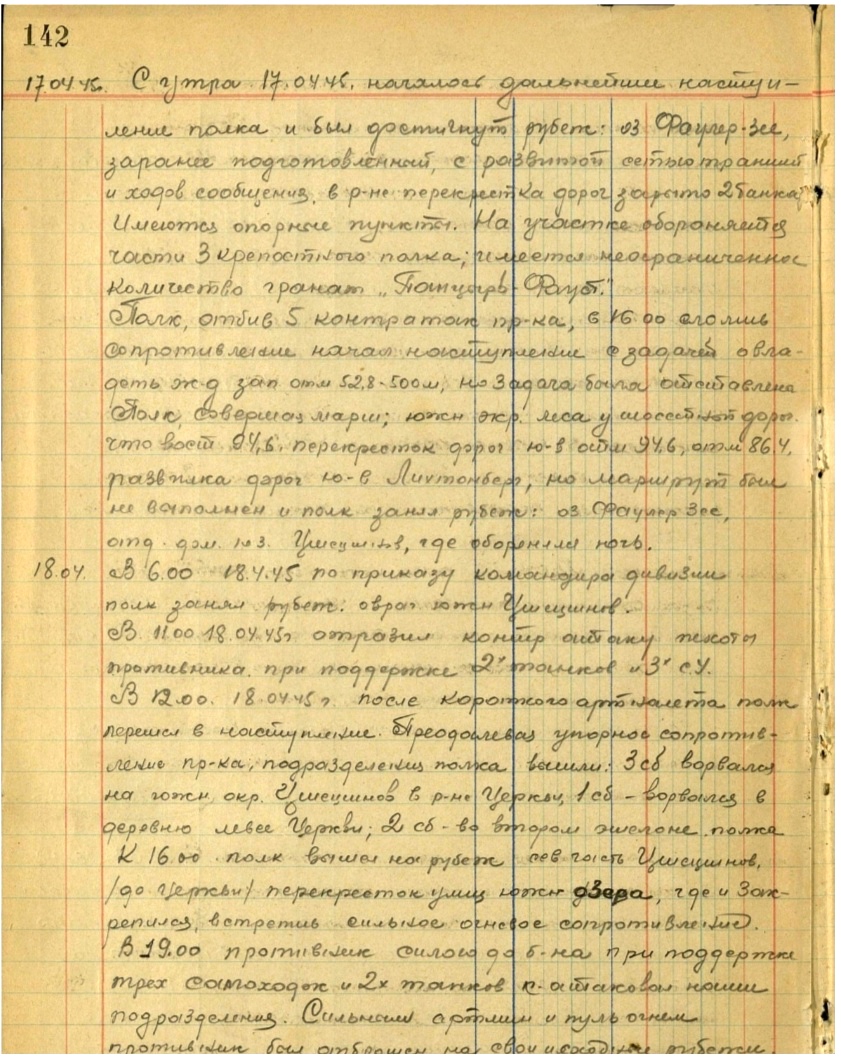 142
17.04.45. С утра 17.04.45. началось дальнейшее наступ-
ление полка и был достигнут рубеж: оз Фаулер-Зее,
заранее подготовленный, с развитой сетью траншей
и ходов сообщения, в р-не перекрестка дорог зарыто 2 танка
Имеются опорные пункты. На участке обороняется
части 3 крепостного полка; имеется неограниченное
количество гранат „Панцырь-Фауст."
Полк, отбив 5 контратак пр-ка, в 16.00 сломив
сопротивление начал наступление с задачей овла-
деть ж-д зап отм 52,8-500м, но задача была отставлена
Полк, совершая марш; южн окр. леса у шоссейной дорог.
что вост 94,6, перекресток дорог ю-в отм 94,6, отм 86.4,
развилка дорог ю-в Лихтонберг, но маршрут был
не выполнен и полк занял рубеж: оз Фаулер Зее,
отд. дом. Цшецшнов, где оборонял ночь.
18.04. В 6.00 18.4.45 по приказу командира дивизии
полк занял рубеж: овраг южн Цшецшнов.
В 11.00 18.04.45г отразил контр атаку пехоты
противника при поддержке 2х танков и 3х с.у.
В 12.00. 18.04.45г. после короткого артналета полк
перешел в наступление. Преодолевая упорное сопротив-
ление пр-ка, подразделения полка вышли: 3 сб ворвался
на южн, окр. Цшецшнов в р-не Церкви, 1 сб - ворвался в
деревню левее Церкви; 2 сб - во втором эшелоне полка
К 16.00 полк вышел на рубеж сев часть Цшецшнов,
/до Церкви/ перекресток улиц южн озера, где и Зак-
репился, встретив сильное огневое сопротивление.
В 19.00 противник силою до б-на при поддержке
трех самоходок и 2х танков к-атаковал наши
подразделения. Сильным артмин и пуль огнем
противник был отброшен на свои исходные рубежи